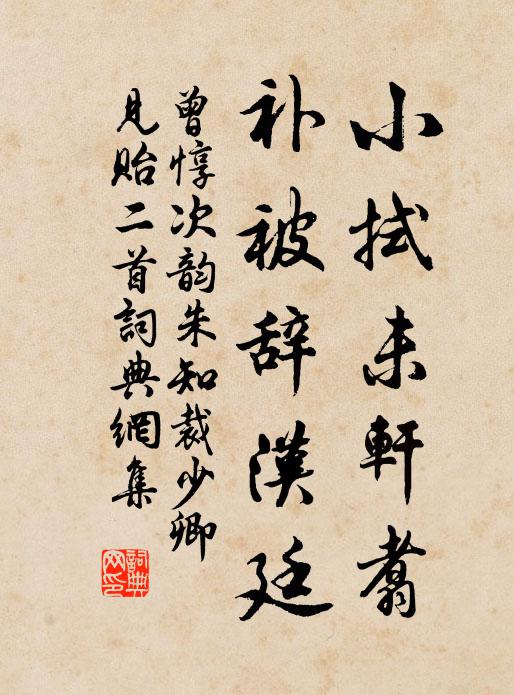 小拭未軒翥
补被辞漢廷
曾惇次韵朱知裁少卿
見貽二首詞典網集
詞典
网印